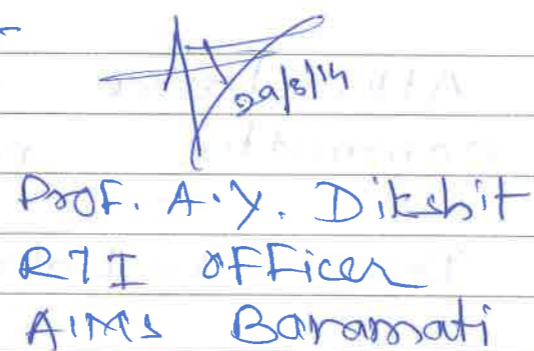 29/8/14
Prof. A.Y. Dikshit
RTI officer
AIMS Baramati